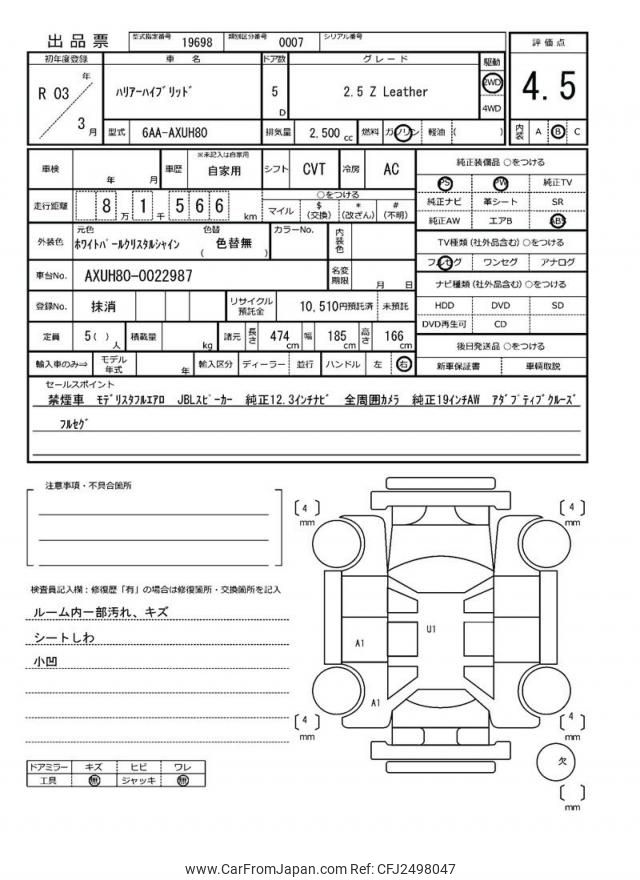 出品票 型式指定番号 19698 類別区分番号 0007 シリアル番号
初年度登録 車名 ドア数 グレード 駆動 評価点
R 03 年 3 月 ハリアーハイブリッド 5 D 2.5 Z Leather 2WD 4WD 4.5
型式 6AA-AXUH80 排気量 2,500 cc 燃料 ガソリン 軽油 ( ) 内装 A B C
車検 年 月 車歴 ※未記入は自家用 自家用 シフト CVT 冷房 AC
純正装備品 ○をつける
PS PW 純正TV
純正ナビ 革シート SR
純正AW エアB ABS
走行距離 8 万 1 千 5 6 6 km
○をつける
マイル $ (交換) * (改ざん) # (不明)
外装色 元色 ホワイトパールクリスタルシャイン 色替 ( 色替無 ) カラーNo. 内装色
TV種類 (社外品含む) ○をつける
フルセグ ワンセグ アナログ
車台No. AXUH80-0022987 名変期限 月 日
ナビ種類 (社外品含む) ○をつける
HDD DVD SD
DVD再生可 CD
登録No. 抹消 リサイクル預託金 10,510円預託済 未預託
定員 5 ( ) 人 積載量 kg 諸元 長さ 474 cm 幅 185 cm 高さ 166 cm
後日発送品 ○をつける
新車保証書 車輌取説
輸入車のみ⇒ モデル年式 年 輸入区分 ディーラー 並行 ハンドル 左 右
セールスポイント
禁煙車 モデリスタフルエアロ JBLスピーカー 純正12.3インチナビ 全周囲カメラ 純正19インチAW アダプティブクルーズ
フルセグ
注意事項・不具合箇所
検査員記入欄：修復歴「有」の場合は修復箇所・交換箇所を記入
ルーム内一部汚れ、キズ
シートしわ
小凹
ドアミラー キズ ヒビ ワレ
工具 無 ジャッキ 無
4 mm
4 mm
U1
A1
A1
4 mm
4 mm
欠
mm
www.CarFromJapan.com Ref: CFJ2498047